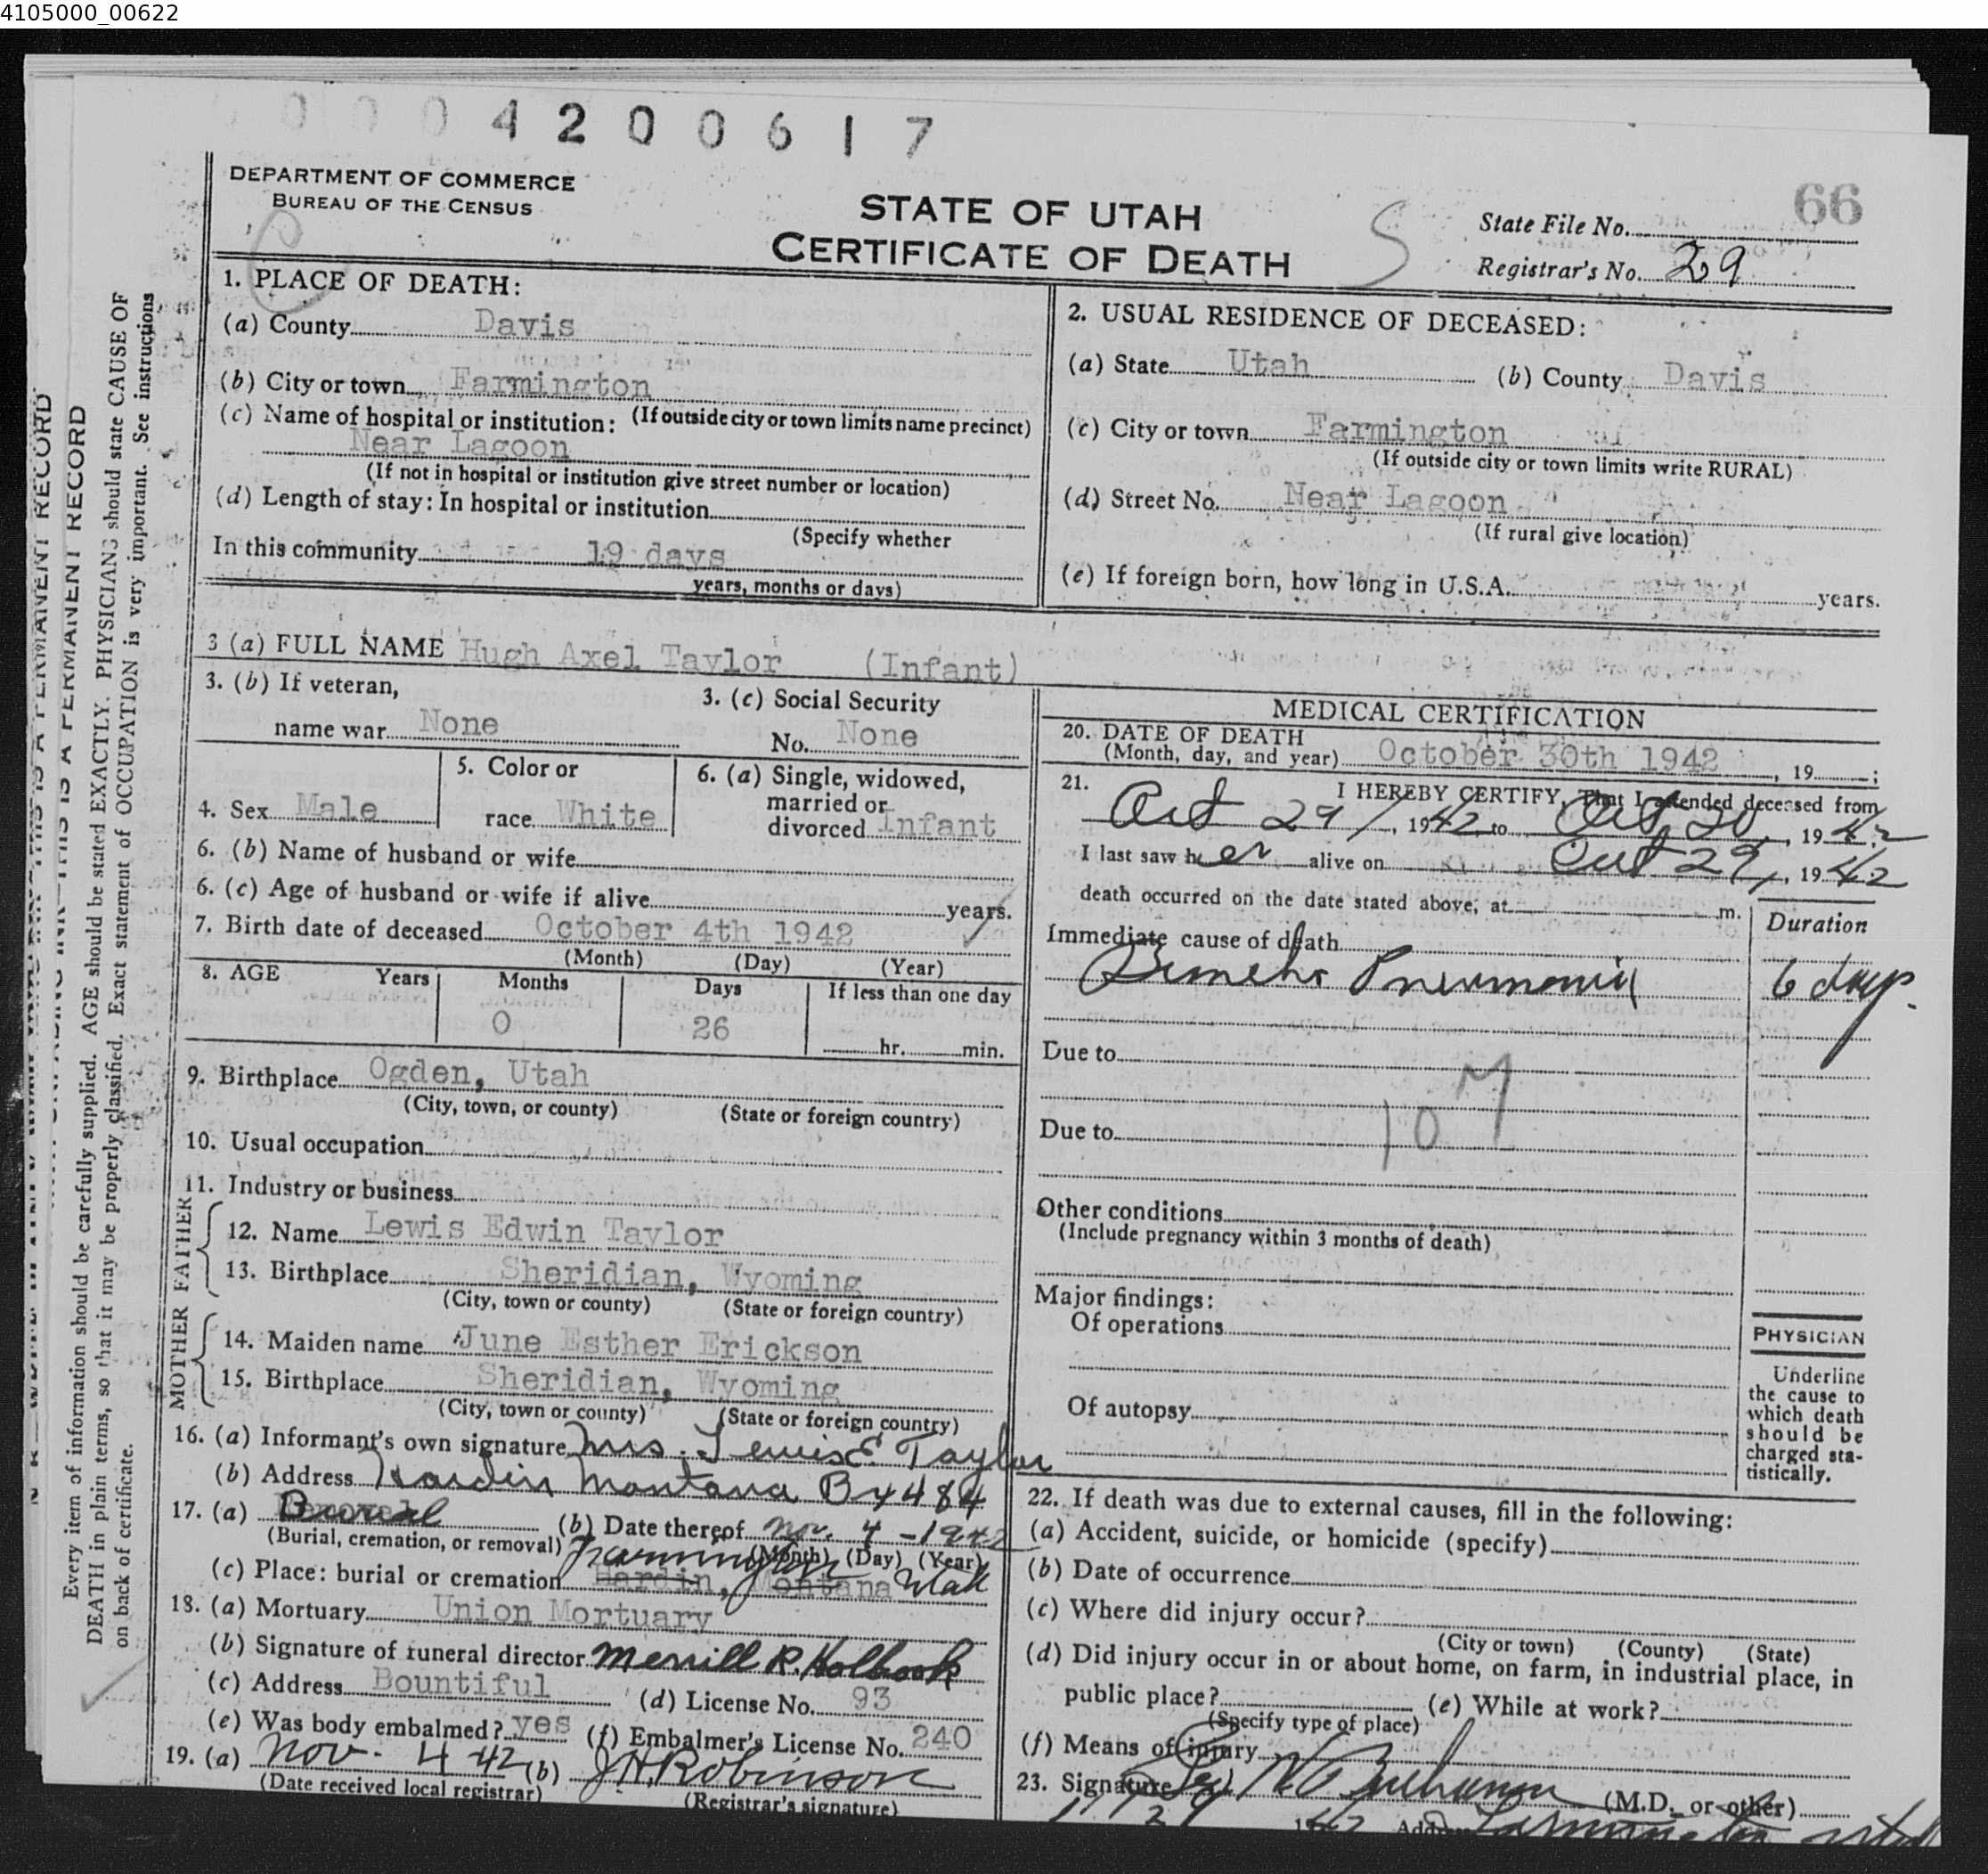 4105000_00622
0004200617
DEPARTMENT OF COMMERCE
BUREAU OF THE CENSUS
STATE OF UTAH
CERTIFICATE OF DEATH
S
66
State File No.
Registrar's No. 29
1. PLACE OF DEATH:
(a) County Davis
(b) City or town Farmington
(c) Name of hospital or institution: (If outside city or town limits name precinct)
Near Lagoon
(If not in hospital or institution give street number or location)
(d) Length of stay: In hospital or institution
(Specify whether
In this community 19 days
years, months or days)
2. USUAL RESIDENCE OF DECEASED:
(a) State Utah (b) County Davis
(c) City or town Farmington
(If outside city or town limits write RURAL)
(d) Street No. Near Lagoon
(If rural give location)
(e) If foreign born, how long in U.S.A. years.
3 (a) FULL NAME Hugh Axel Taylor (Infant)
3. (b) If veteran,
name war None
3. (c) Social Security
No. None
4. Sex Male
5. Color or
race White
6. (a) Single, widowed,
married or
divorced Infant
6. (b) Name of husband or wife
6. (c) Age of husband or wife if alive years.
7. Birth date of deceased October 4th 1942
(Month) (Day) (Year)
8. AGE Years Months Days If less than one day
0 26 hr. min.
9. Birthplace Ogden, Utah
(City, town, or county) (State or foreign country)
10. Usual occupation
11. Industry or business
FATHER
12. Name Lewis Edwin Taylor
13. Birthplace Sheridian, Wyoming
(City, town or county) (State or foreign country)
MOTHER
14. Maiden name June Esther Erickson
15. Birthplace Sheridian, Wyoming
(City, town or county) (State or foreign country)
16. (a) Informant's own signature Mrs. Lewis E. Taylor
(b) Address Hardin Montana Bx 484
17. (a) Burial (b) Date thereof Nov. 4 - 1942
(Burial, cremation, or removal) (Month) (Day) (Year)
Farmington
(c) Place: burial or cremation Hardin, Montana Utah
18. (a) Mortuary Union Mortuary
(b) Signature of funeral director Merrill R. Holbrook
(c) Address Bountiful (d) License No. 93
(e) Was body embalmed? yes (f) Embalmer's License No. 240
19. (a) Nov. 4 42 (b) J.H. Robinson
(Date received local registrar) (Registrar's signature)
MEDICAL CERTIFICATION
20. DATE OF DEATH
(Month, day, and year) October 30th 1942, 19 ;
21. I HEREBY CERTIFY, That I attended deceased from
Oct 29, 1942, to Oct 30, 1942
I last saw her alive on Oct 29, 1942
death occurred on the date stated above, at m.
Duration
Immediate cause of death
Broncho Pneumonia 6 days.
Due to
107
Due to
Other conditions
(Include pregnancy within 3 months of death)
Major findings:
Of operations
Of autopsy
PHYSICIAN
Underline
the cause to
which death
should be
charged sta-
tistically.
22. If death was due to external causes, fill in the following:
(a) Accident, suicide, or homicide (specify)
(b) Date of occurrence
(c) Where did injury occur?
(City or town) (County) (State)
(d) Did injury occur in or about home, on farm, in industrial place, in
public place? (e) While at work?
(Specify type of place)
(f) Means of injury
23. Signature Buchanan (M.D. or other)
Address Farmington Utah
Every item of information should be carefully supplied. AGE should be stated EXACTLY. PHYSICIANS should state CAUSE OF
DEATH in plain terms, so that it may be properly classified. Exact statement of OCCUPATION is very important. See instructions
on back of certificate.